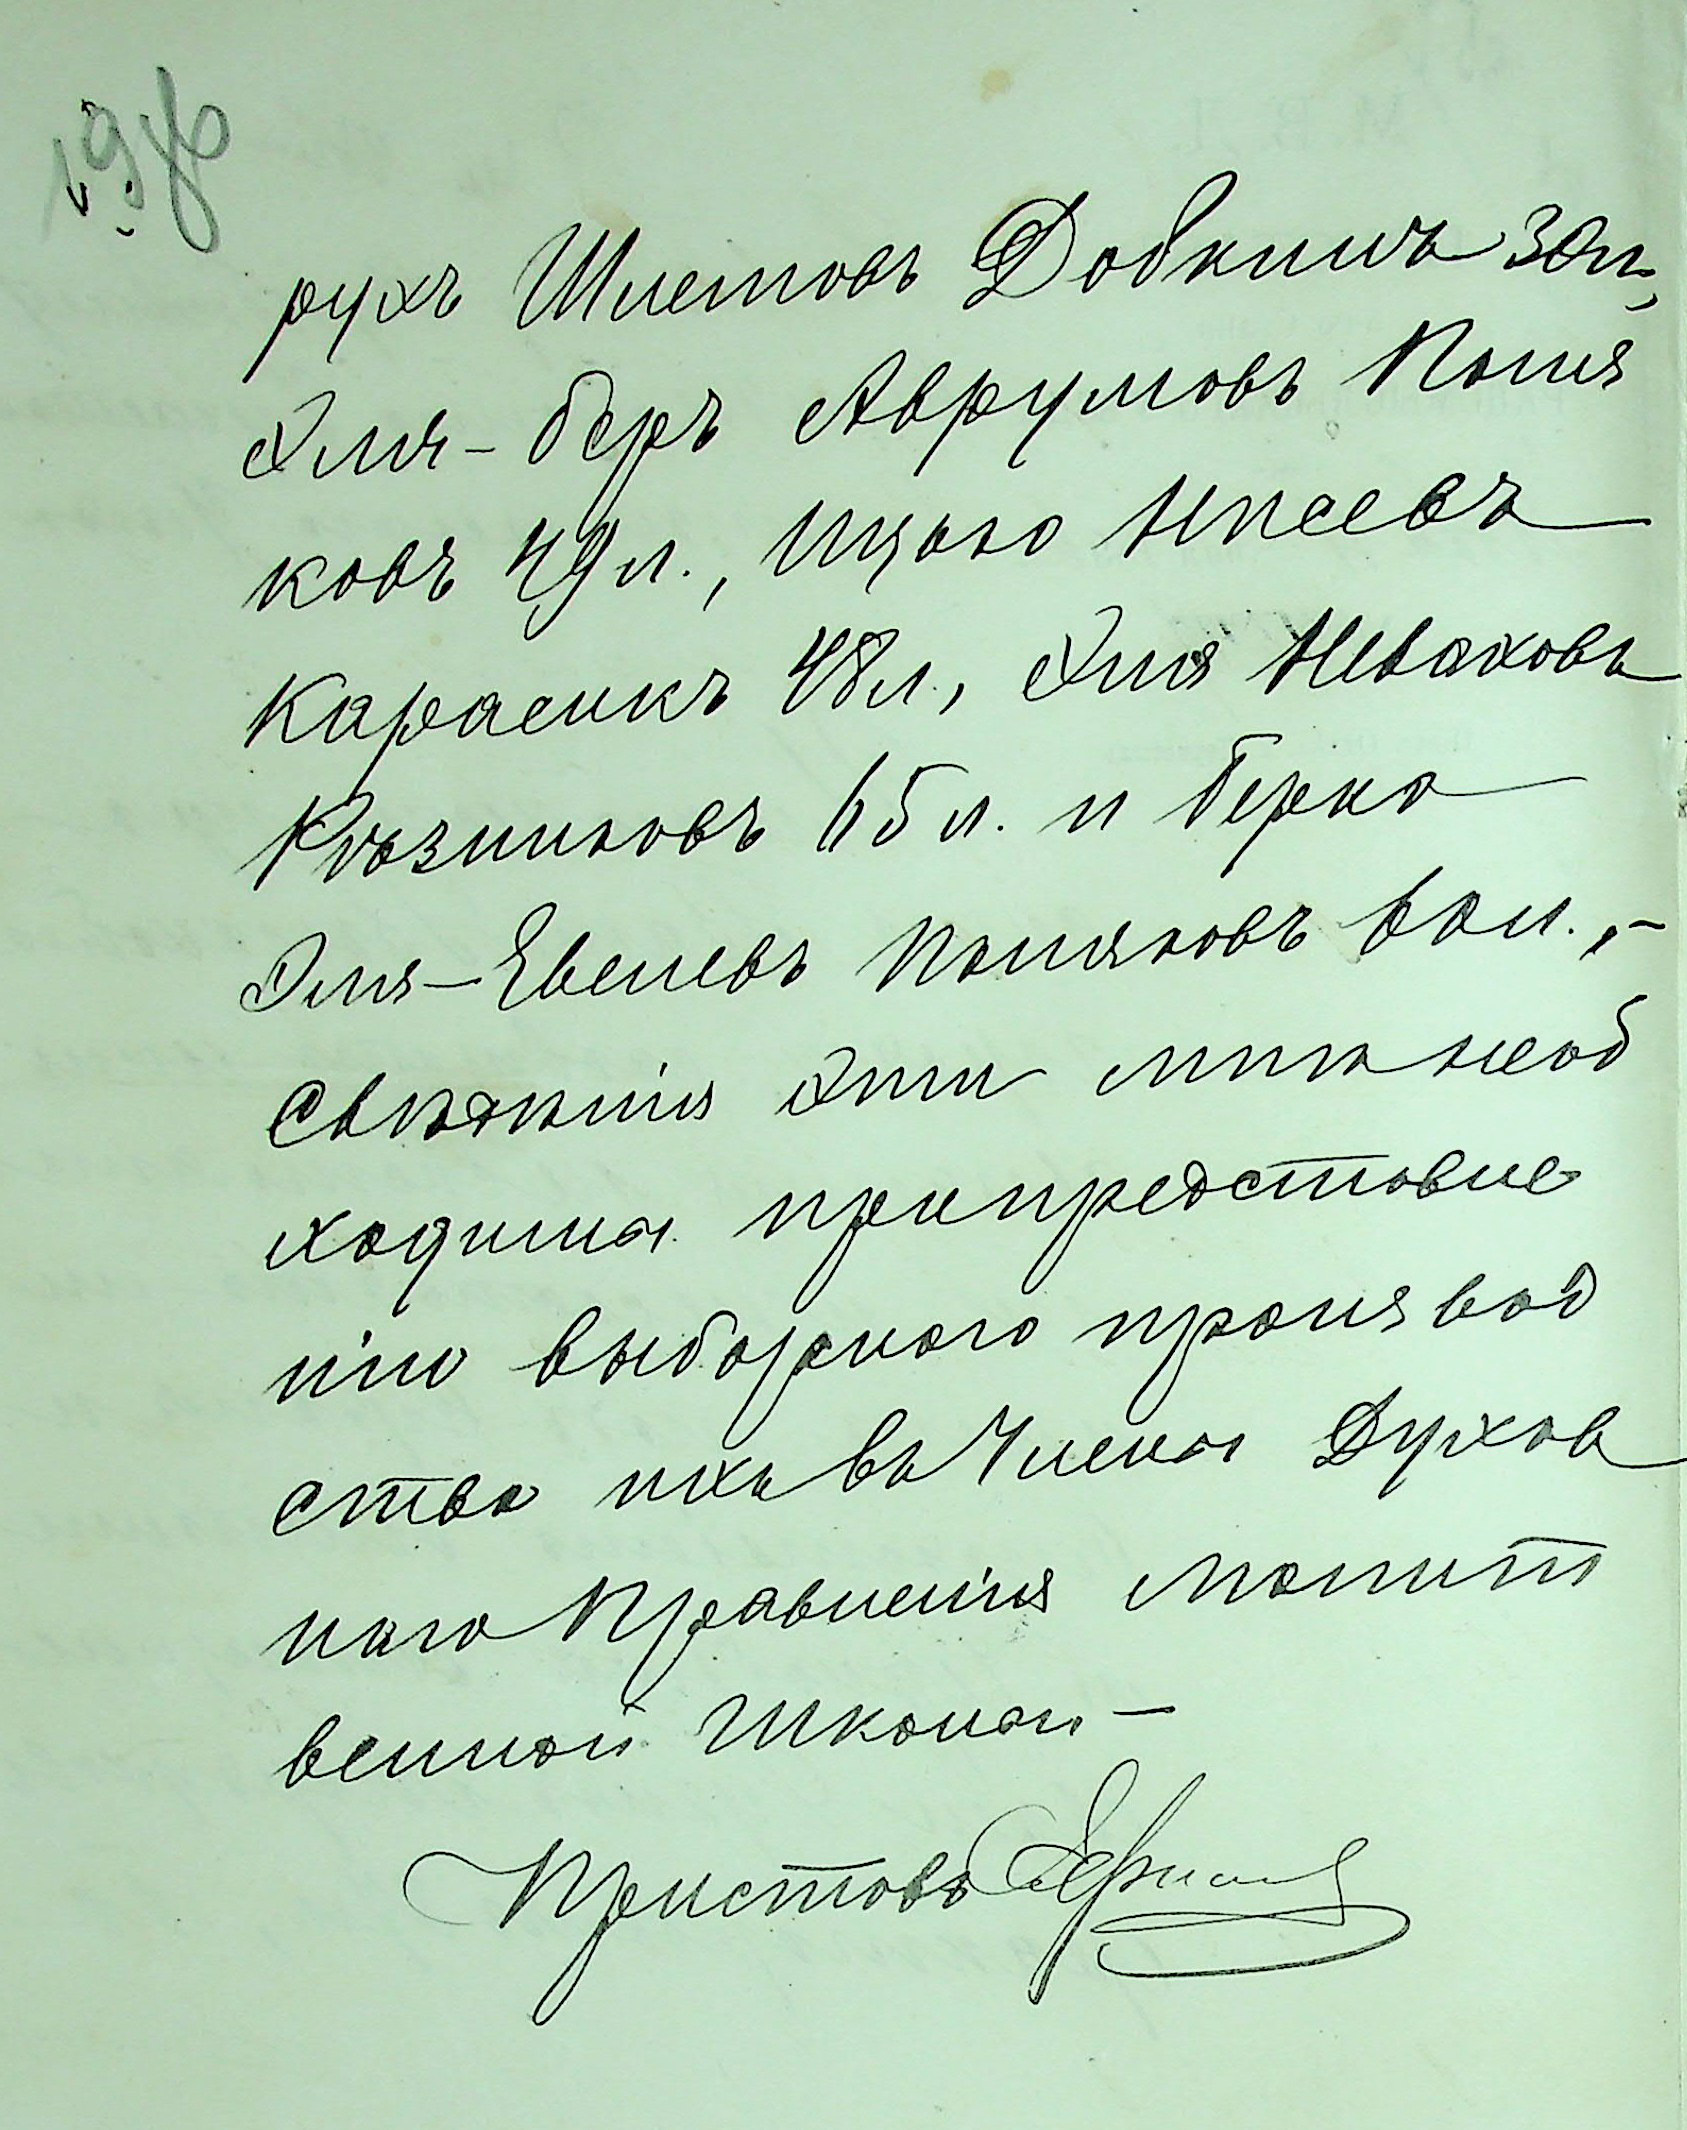 рухъ Шлемовъ Добкинъ 30л,
Эля-беръ Аврумовъ Поля
ковъ 49л., Ицко Нисевъ
Карасикъ 48л., Эля Неваховъ
Рѣзниковъ 65л. и Берко
Эля-Евелевъ Поляковъ 60л.,-
Свѣдѣнія эти мнѣ необ
ходимы при представле
ніи выборного производ
ства ихъ въ Члены Духов
наго Правленія молит
венной школы-
Приставъ